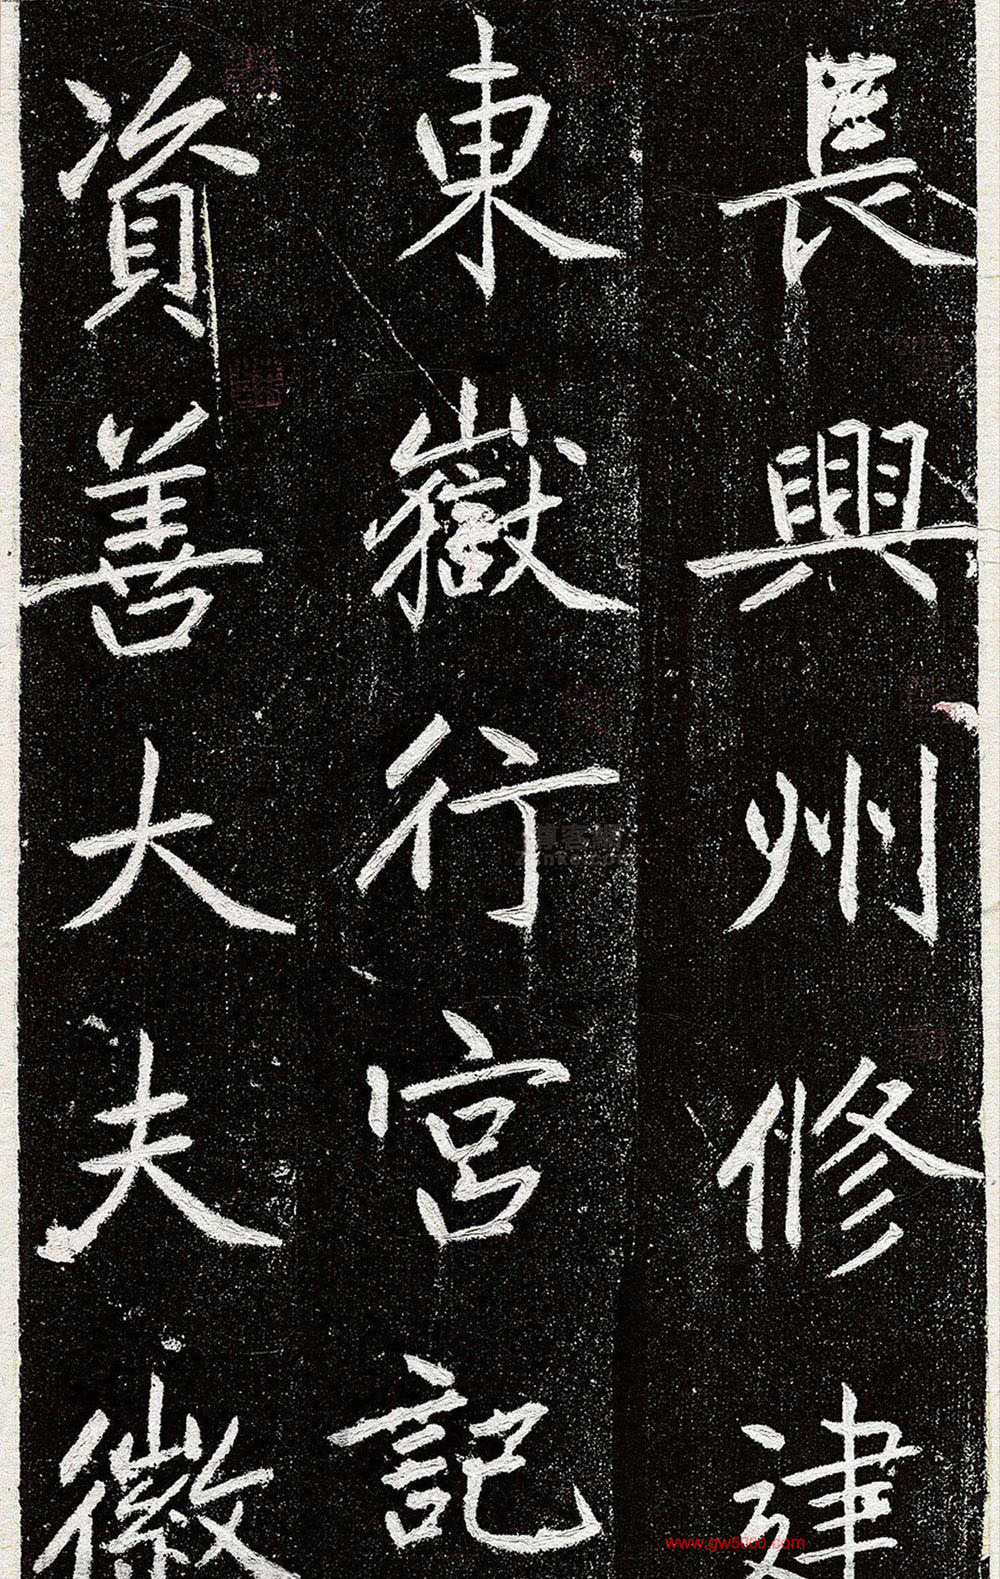 長興州修建
東嶽行宮記
資善大夫徽
www.gw5000.com